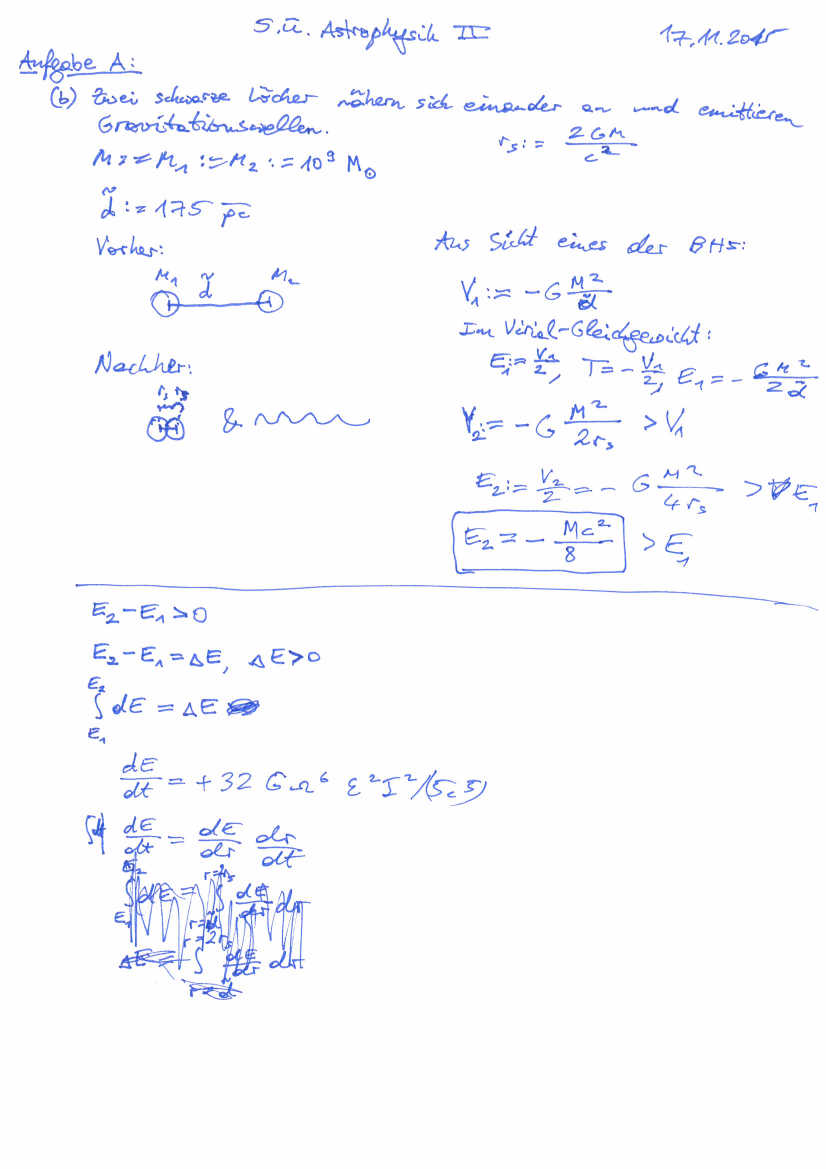 5. Ü. Astrophysik II 17.11.2015
Aufgabe A:
(b) Zwei schwarze Löcher nähern sich einander an und emittieren
Gravitationswellen.
r_s := 2GM/c²
M := M₁ := M₂ := 10⁹ M_⊙
d̃ := 175 pc
Vorher:
M₁ d̃ M₂
Nachher:
r_s r_s
&
Aus Sicht eines der BHs:
V₁ := -G M²/d̃
Im Virial-Gleichgewicht:
E₁ := V₁/2, T = -V₁/2, E₁ = - GM²/2d̃
V₂ := -G M²/2r_s > V₁
E₂ := V₂/2 = - G M²/4r_s > E₁
E₂ = - Mc²/8 > E₁
E₂ - E₁ > 0
E₂ - E₁ = ΔE, ΔE > 0
∫_{E₁}^{E₂} dE = ΔE
dE/dt = +32 G Ω⁶ ε² I²/(5c⁵)
dE/dt = dE/dr dr/dt